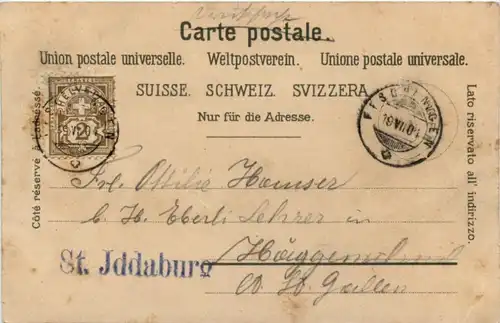 Carte postale.
Union postale universelle. Weltpostverein. Unione postale universale.
SUISSE. SCHWEIZ. SVIZZERA.
Nur für die Adresse.
Côté réservé à l'adresse.
Lato riservato all' indirizzo.
HELVETIA
2
FISCHINGEN
19 VII 04
Frl. Ottilie Hamser
b. H. Eberli Lehrer in
Häggenschwil
Ct. St. Gallen
St. Iddaburg